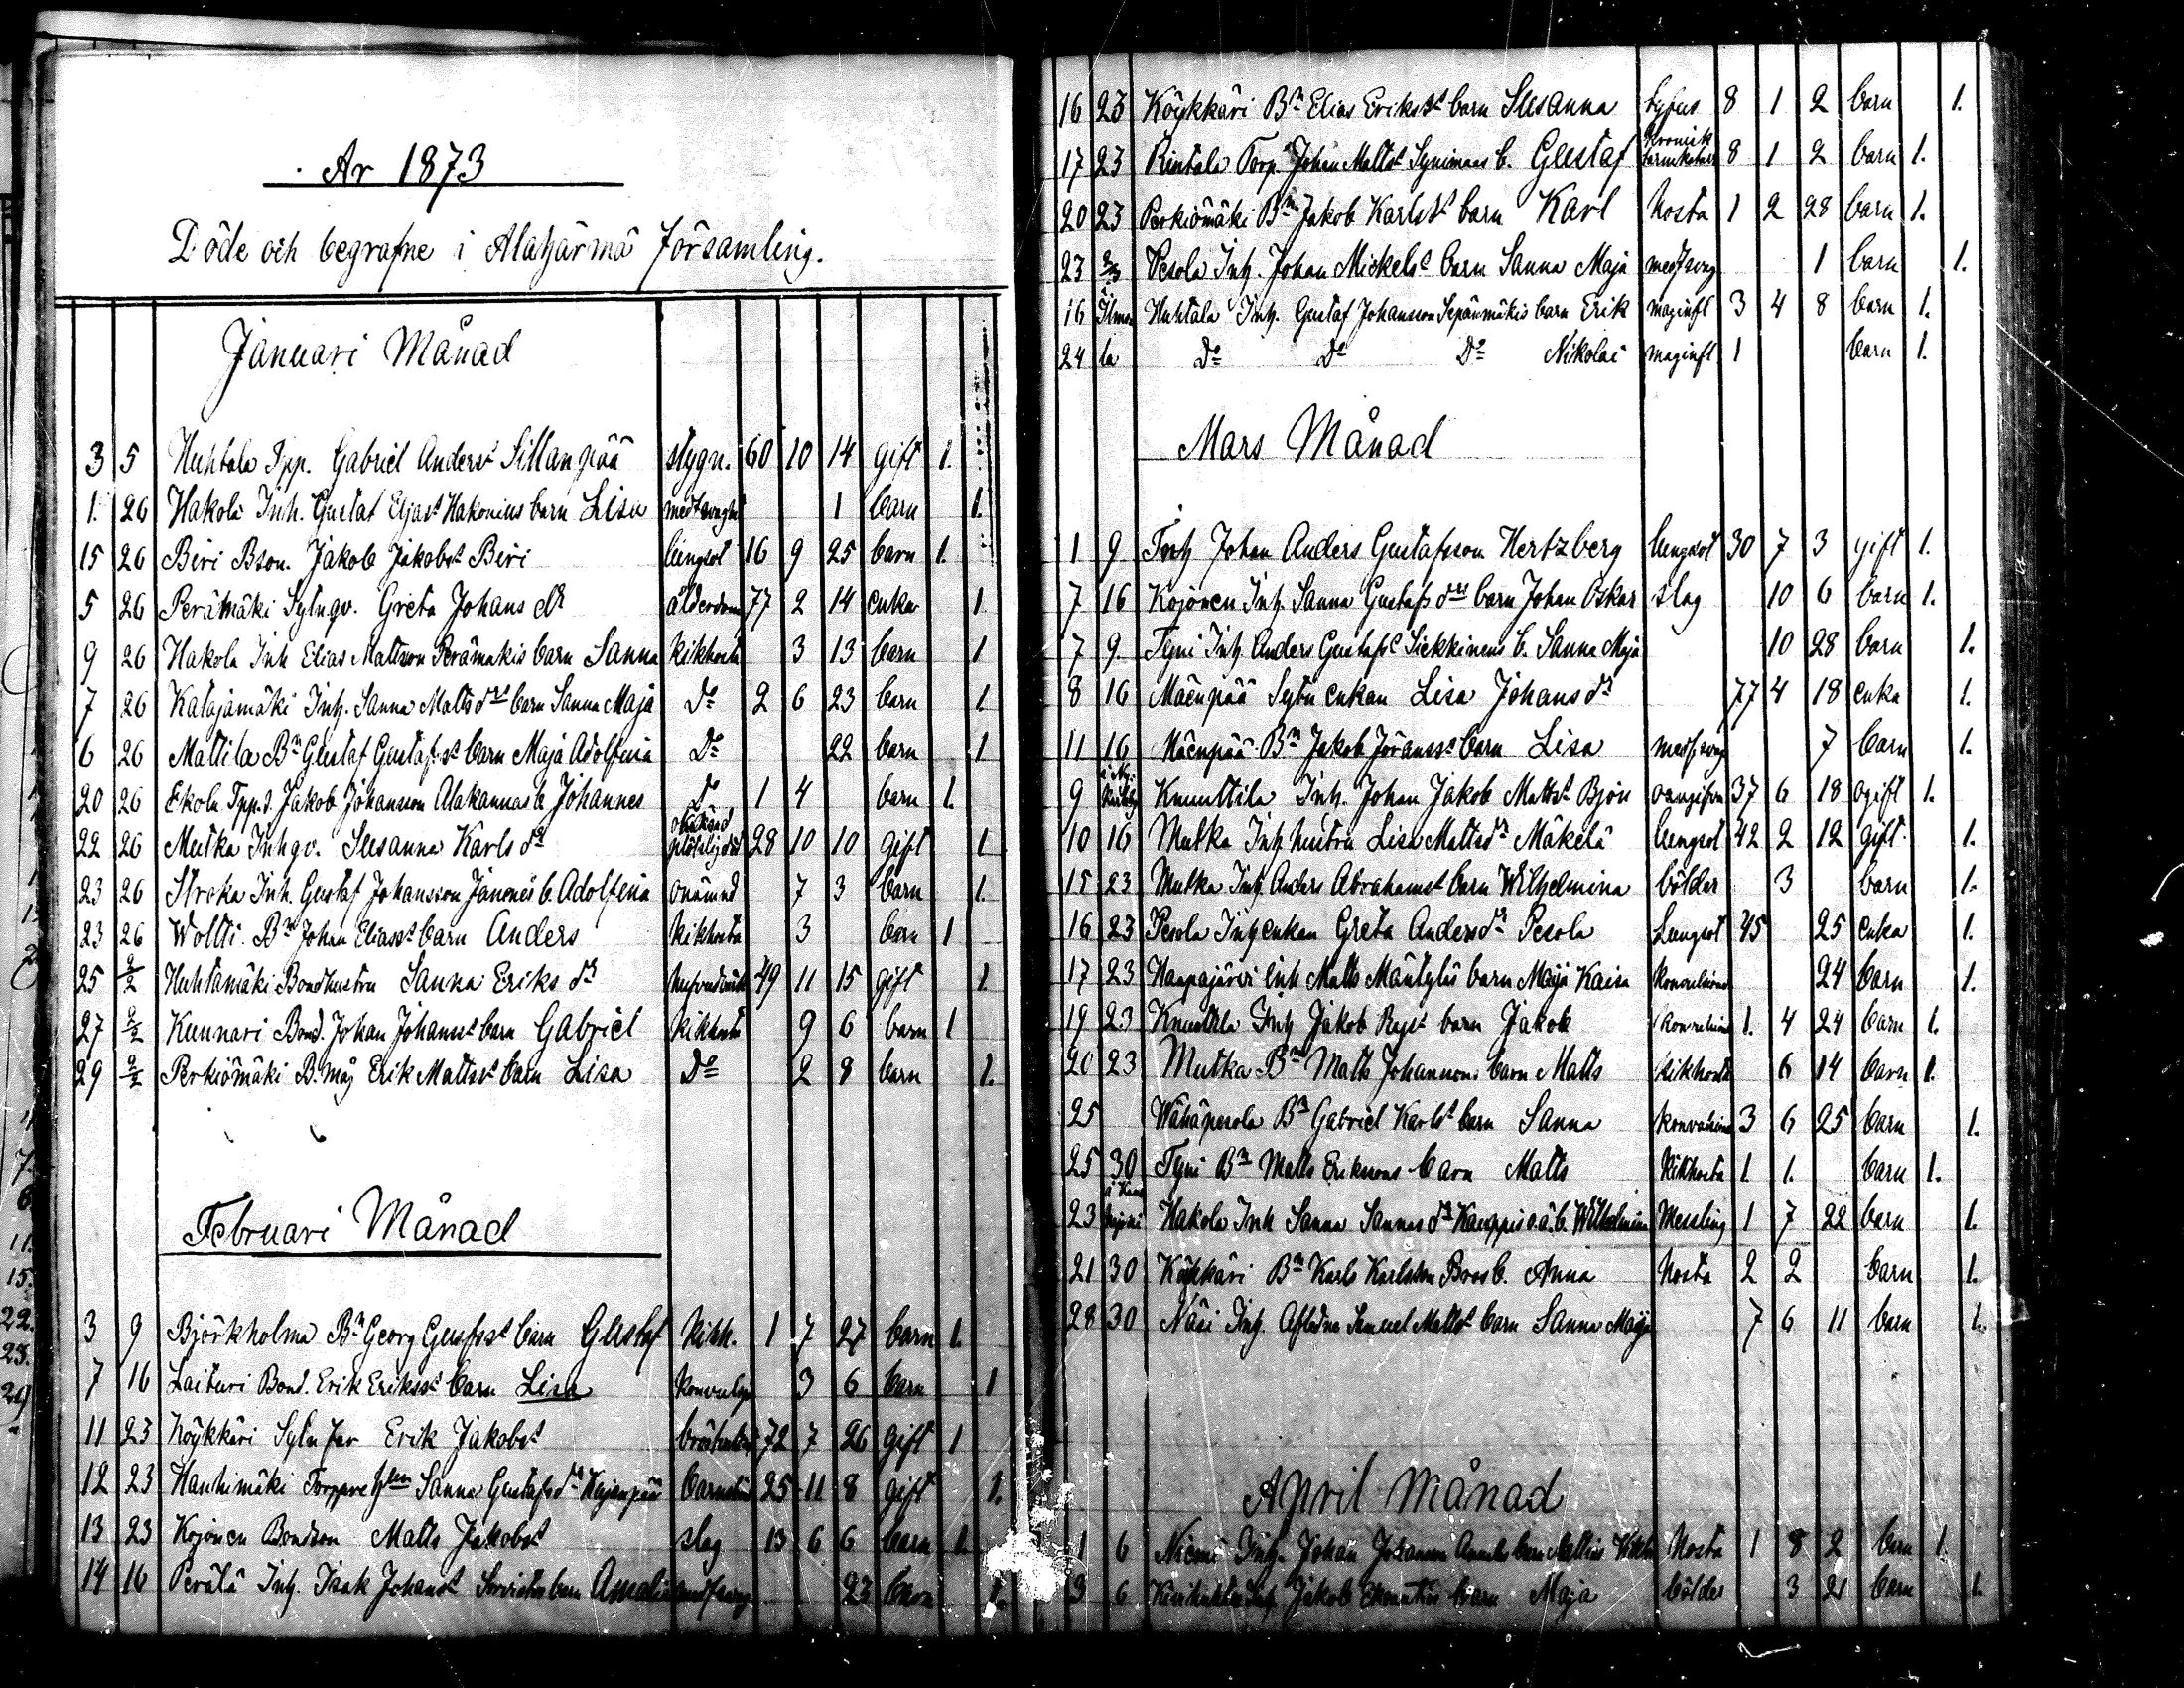 År 1873
Döde och begrafne i Alahärmä församling.
Januari Månad
3 5 Huhtala Tpp. Gabriel Anderss Sillanpää stygn. 60 10 14 gift 1.
1. 26 Hakola Inh. Gustaf Eljass Hakonius barn Lisa 1 barn 1.
15 26 Biri Bson. Jakob Jakobss Biri lungsot 16 9 25 barn 1.
5 26 Perämäki Sytngv. Greta Johans dr ålderdom 77 2 14 enka 1
9 26 Hakola Inh Elias Mattson Perämakis barn Sanna kikhosta 3 13 barn 1
7 26 Katajamäki Inh. Sanna Matts drs barn Sanna Maja Do 2 6 23 barn 1.
6 26 Mattila Bn Gustaf Gustafss barn Maja Adolfina Do 22 barn 1
20 26 Ekola Tpp.s. Jakob Johansson Alakannas b Johannes Do 1 4 barn 1.
22 26 Mutka Inhgv. Susanna Karls dr okänd plötslig död 28 10 10 gift 1
23 26 Stroka Inh. Gustaf Johansson Janones b. Adolfina onämnd 7 3 barn 1.
23 26 Woltti Bn Johan Eliass barn Anders kikhosta 3 barn 1
25 2/2 Huhtamäki Bondhustru Sanna Eriks dr 49 11 15 gift 1.
27 2/2 Kunnari Bond. Johan Johanss barn Gabriel kikhosta 9 6 barn 1
29 2/2 Perkiömäki B. måg Erik Mattss barn Lisa Do 2 8 barn 1.
Februari Månad
3 9 Björkholma Bn Georg Gustfss barn Gustaf kikh. 1 7 27 barn 1.
7 16 Laituri Bond. Erik Erikss barn Lisa konvuls 3 6 barn 1
11 23 Köykkäri Sytn far Erik Jakobss 72 7 26 gift 1
12 23 Hanhimäki Torpare Sanna Gustafs dr barnsäng 25 11 8 gift 1.
13 23 Kojonen Bondson Matts Jakobss slag 13 6 6 barn 1
14 16 Perälä Inh. Isak Johanss barn Amalia medfsvag 23 barn 1.
16 23 Köykkäri Bn Elias Erikss barn Susanna tyfus 8 1 2 barn 1.
17 23 Rintala Torp. Johan Mattss Synimaas b. Gustaf kronisk tarmkatarr 8 1 2 barn 1.
20 23 Perkiömäki Bn Jakob Karlss barn Karl hosta 1 2 28 barn 1.
23 2/3 Pesola Inh. Johan Mickels barn Sanna Maja medfsvag 1 barn 1.
16 i Ilma Huhtala Inh. Gustaf Johansson Sepänmäkis barn Erik maginfl 3 4 8 barn 1.
24 la Do Do Do Nikolai maginfl 1 barn 1.
Mars Månad
1 9 Inh Johan Anders Gustafsson Hertzberg lungsot 30 7 3 gift 1.
7 16 Kojonen Inh. Sanna Gustafs drs barn Johan Oskar slag 10 6 barn 1.
7 9. Tyni Inh Anders Gustafs Siekkinens b. Sanna Maja 10 28 barn 1.
8 16 Mäenpää Sytn enkan Lisa Johans dr 77 4 18 enka 1.
11 16 Mäenpää Bn Jakob barn Lisa medfsvag 7 barn 1.
9 Knuuttila Inh. Johan Jakob Mattss Björn 37 6 18 ogift 1.
10 16 Mutka Inh hustru Lisa Mattsdr Mäkelä lungsot 42 2 12 gift 1.
15 23 Mutka Inh Anders Abrahamss barn Wilhelmina bölder 3 barn 1.
16 23 Pesola Inh enkan Greta Anders dr Pesola Lungsot 45 25 enka 1.
17 23 Haapajärvi Inh Matts Mäntyläs barn Maja Kaisa konvulsions 24 barn 1.
19 23 Knuuttila Inh Jakob barn Jakob konvulsions 1. 4 24 barn 1.
20 23 Mutka Bn Matts Johanssons barn Matts kikhosta 6 14 barn 1.
25 Wähäpesola Bn Gabriel Karlss barn Sanna konvulsions 3 6 25 barn 1.
25 30 Tyni Bn Matts Erikssons barn Matts kikhosta 1. 1. barn 1.
23 Hakola Inh Sanna Sannas dr Kauppis o.ä.b. Wilhelmina Messling 1 7 22 barn 1.
21 30 Köykkäri Bn Karls Karlsson Broo b. Anna hosta 2 2 barn 1.
28 30 Näsi Inh. Afledne Samuel Mattss barn Sanna Maja 7 6 11 barn 1.
April Månad
1 6 Niemi Inh. Johan Johansson barn Hosta 1 8 2 barn 1.
3 6 Jakob barn Maja bölder 3 21 barn 1.